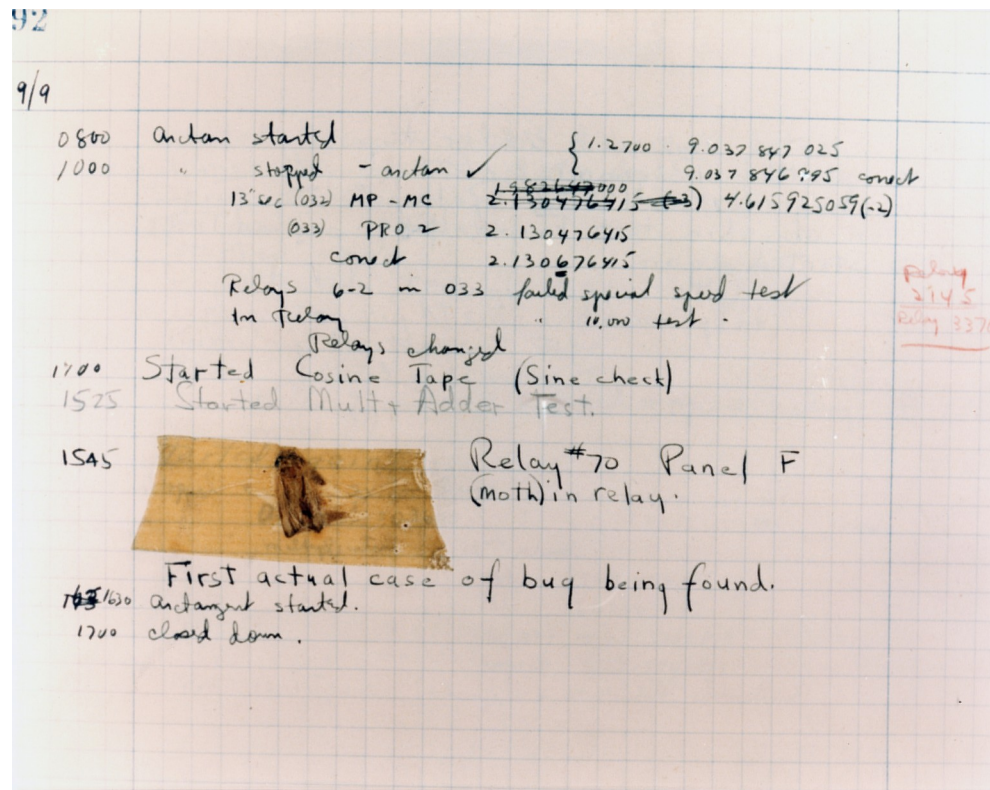 92
9/9
0800 Antan started { 1.2700 9.037 847 025
1000 " stopped - antan ✓ 9.037 846 995 conect
13"uc (032) MP - MC 2.130476415 (-3) 4.615925059(-2)
(033) PRO 2 2.130476415
conect 2.130676415
Relays 6-2 in 033 failed special speed test
In Relay " 10,000 test .
Relays changed
Started Cosine Tape (Sine check)
1525 Started Mult + Adder Test.
1545 Relay #70 Panel F
(moth) in relay.
First actual case of bug being found.
1630 antangent started.
1700 closed down.
Relay
2145
Relay 337